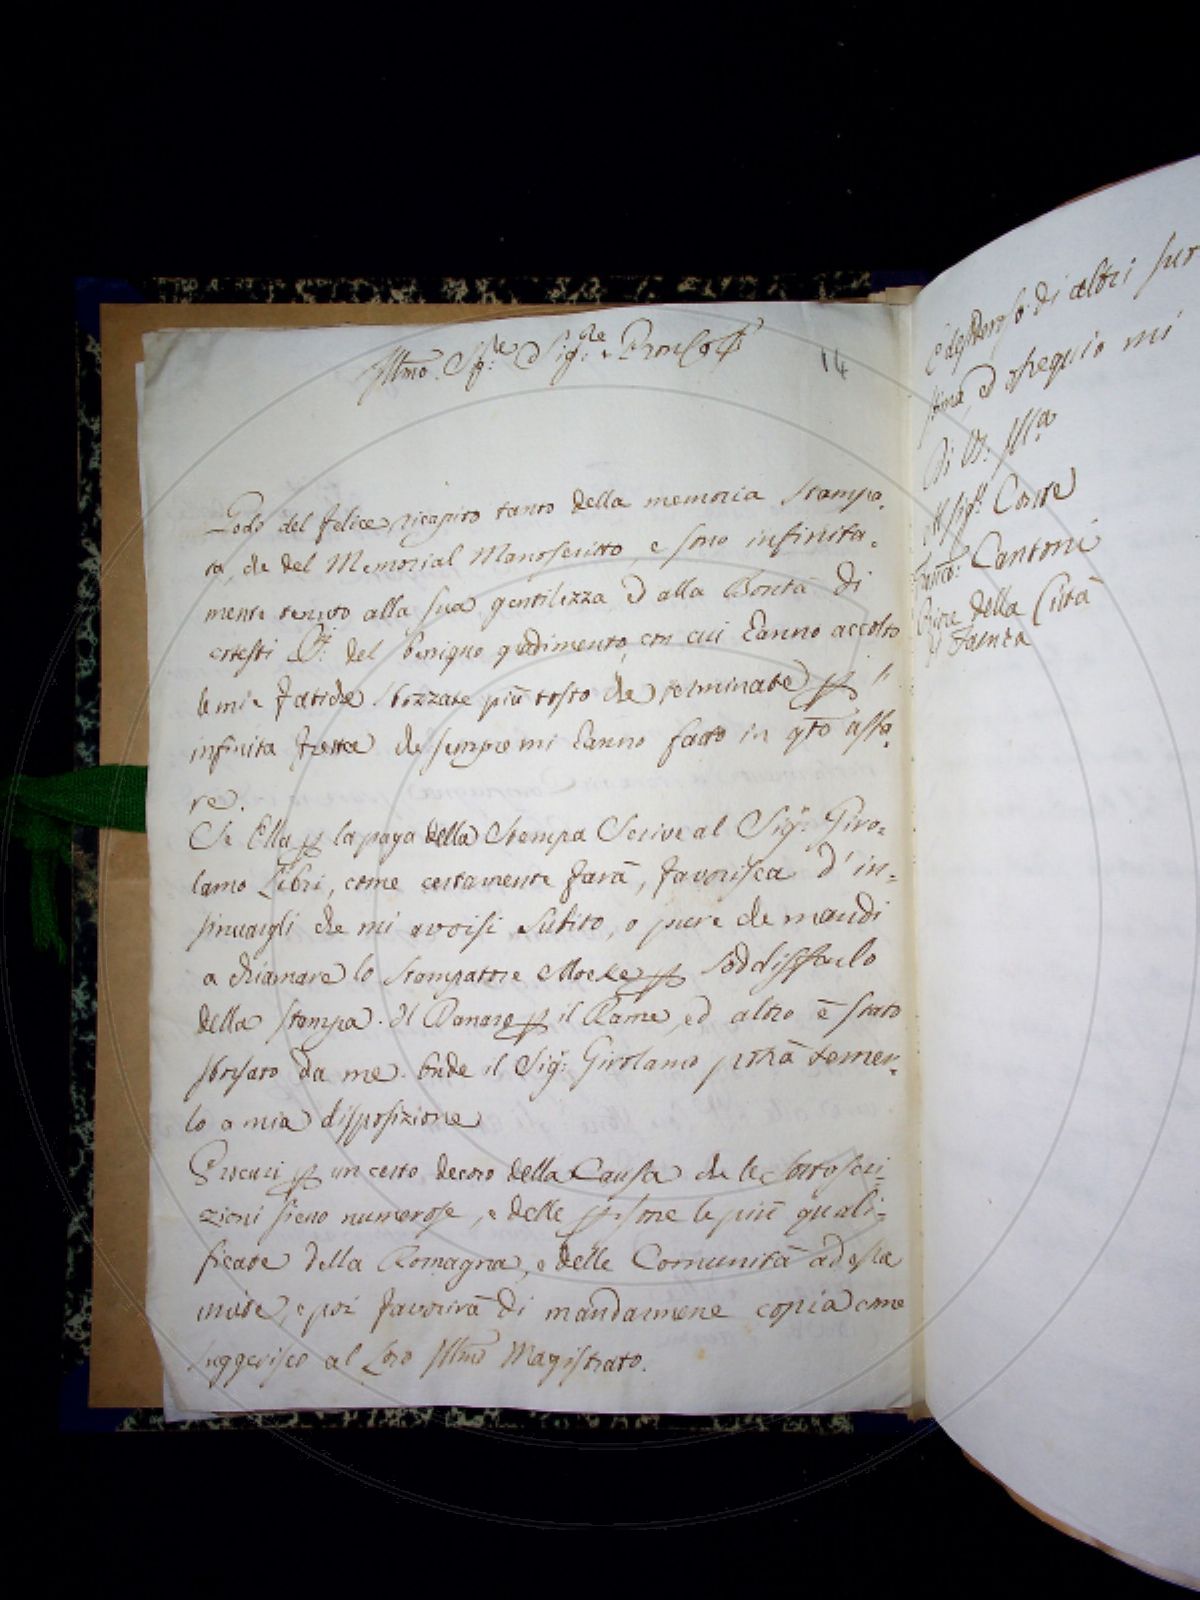 Illmo. Sig.re Sig.re e Pron Col
14
Godo del felice ricapito tanto della memoria stampa-
ta, che del Memorial Manoscritto, e sono infinita-
mente tenuto alla sua gentilezza ed alla Bontà di
cotesti SS.i del benigno gradimento, con cui hanno accolto
le mie fatiche sbozzate più tosto che terminate per l'
infinita fretta che sempre mi hanno fatto in qto affa-
re.
Se Ella per la paga della Stampa Scrive al Sigr. Giro-
lamo Libri, come certamente farà, favorisca d'in-
sinuargli che mi avvisi subito, o pure che mandi
a chiamare lo Stampatore Moeke per soddisfarlo
della stampa. Il Danaro per il Rame, ed altro è stato
sborsato da me. Onde il Sigr. Girolamo potrà tener-
lo a mia disposizione
Procuri per un certo decoro della Causa che le sottoscri-
zioni sieno numerose, e delle persone le più quali-
ficate della Romagna, e delle Comunità ad essa
unite, e poi favorirà di mandarmene copia come
suggerisco al Loro Illmo Magistrato.
di altri
stima, ed ossequio mi
Di VS. Illa
Al Sigr. Conte
Franco. Cantoni
della Città
di Faenza